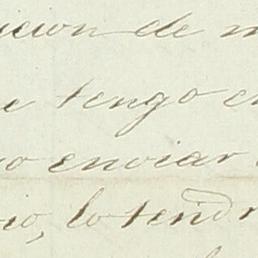 icion de m
e tengo en
o enviar
io, lo tendr